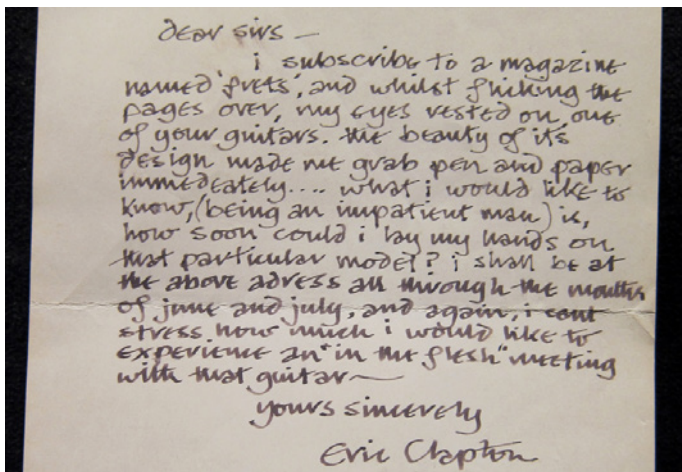 dear sirs —
i subscribe to a magazine
named 'frets', and whilst flicking the
pages over, my eyes rested on one
of your guitars. the beauty of its
design made me grab pen and paper
immedeately.... what i would like to
know, (being an impatient man) is,
how soon could i lay my hands on
that particular model? i shall be at
the above adress all through the months
of june and july, and again, i cant
stress how much i would like to
experience an "in the flesh" meeting
with that guitar —
yours sincerely
Eric Clapton